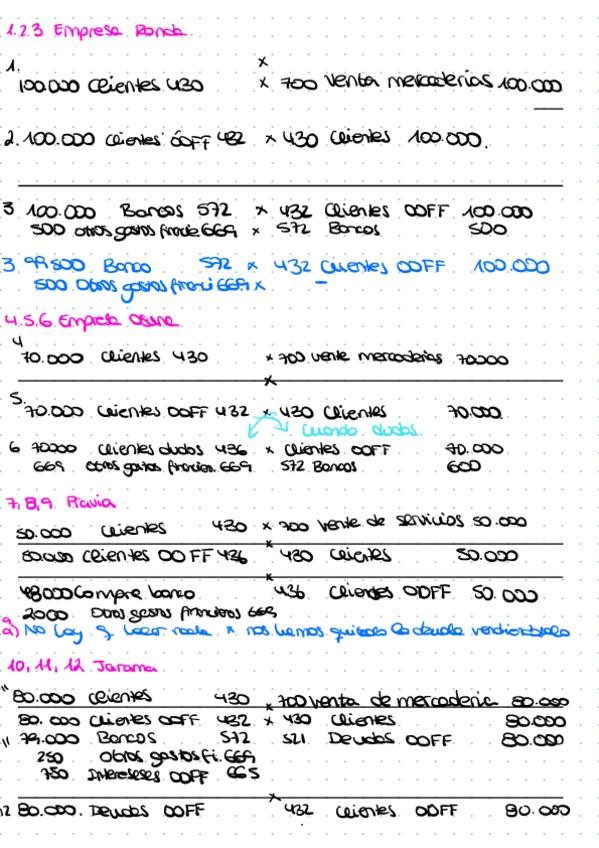 1.2.3 Empresa Ronda
x
1.
100.000 clientes 430 x 700 venta mercaderias 100.000
2. 100.000 clientes OOFF 432 x 430 clientes 100.000.
3 100.000 Bancos 572 x 432 Clientes OOFF 100.000
500 otros gastos 669 x 572 Bancos 500
3. 99.500 Banco 572 x 432 clientes OOFF 100.000
500 Otros gastos financi 669 x
4.5.6 Empresa Osuna
4
70.000 clientes 430 x 700 vente mercaderias 70.000
x
5.
70.000 clientes OOFF 432 x 430 clientes 70.000.
cuando dudas.
6 70.000 clientes dudos 436 x clientes OOFF 70.000
669 otros gastos 669 572 Bancos 600
7,8,9 Pravia
50.000 clientes 430 x 700 vente de servicios 50.000
x
50.000 clientes OOFF 436 430 clientes 50.000
x
48000 Compra banco 436 clientes OOFF 50.000
2000 Otros gastos financieros 669
9
a) No hay q hacer nada x nos hemos quitado la deuda
10, 11, 12 Jarama
" 80.000 clientes 430 x 700 venta de mercaderia 80.000
80.000 clientes OOFF 432 x 430 clientes 80.000
" 79.000 Bancos 572 521 Deudas OOFF 80.000
250 Otros gastos fi. 669
750 Intereses OOFF 665
x
12 80.000. Deudas OOFF 432 clientes OOFF 80.000